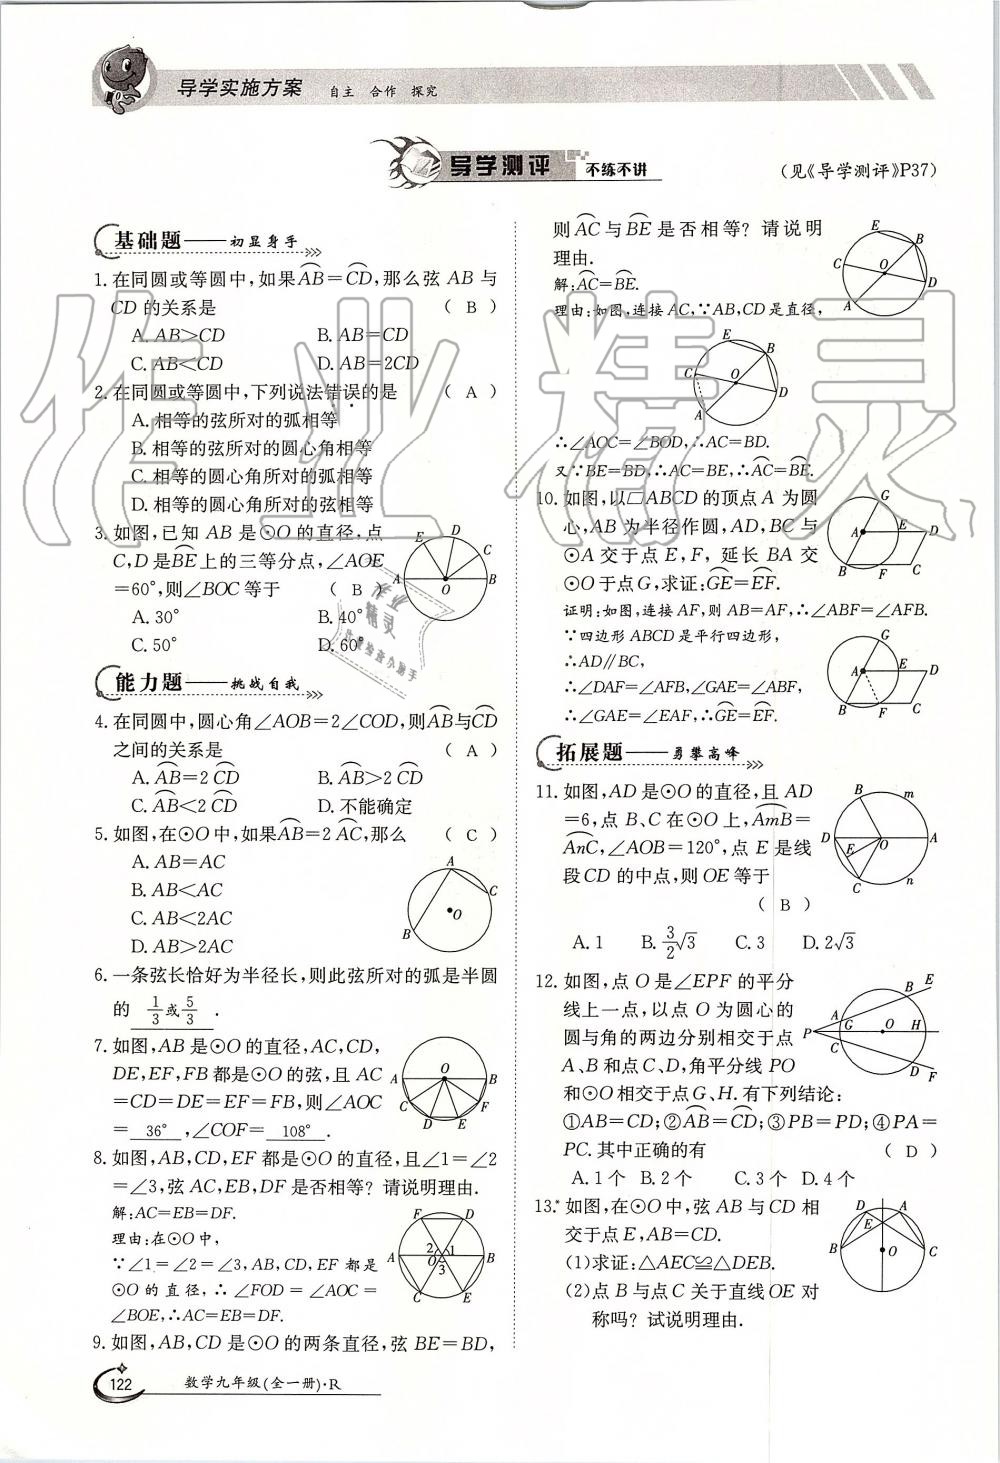 导学实施方案 自主 合作 探究
导学测评 不练不讲
(见《导学测评》P37)
基础题——初显身手
1. 在同圆或等圆中,如果AB=CD,那么弦 AB 与
CD 的关系是 ( B )
A. AB>CD B. AB=CD
C. AB<CD D. AB=2CD
2. 在同圆或等圆中,下列说法错误的是 ( A )
A. 相等的弦所对的弧相等
B. 相等的弦所对的圆心角相等
C. 相等的圆心角所对的弧相等
D. 相等的圆心角所对的弦相等
3. 如图,已知 AB 是⊙O 的直径,点
C,D 是BE上的三等分点,∠AOE
=60°,则∠BOC 等于 ( B )
A. 30° B. 40°
C. 50° D. 60°
能力题——挑战自我
4. 在同圆中,圆心角∠AOB=2∠COD,则AB与CD
之间的关系是 ( A )
A. AB=2 CD B. AB>2 CD
C. AB<2 CD D. 不能确定
5. 如图,在⊙O 中,如果AB=2 AC,那么 ( C )
A. AB=AC
B. AB<AC
C. AB<2AC
D. AB>2AC
6. 一条弦长恰好为半径长,则此弦所对的弧是半圆
的 1/3 或 5/3 .
7. 如图,AB 是⊙O 的直径,AC,CD,
DE,EF,FB 都是⊙O 的弦,且 AC
=CD=DE=EF=FB,则∠AOC
= 36° ,∠COF= 108° .
8. 如图,AB,CD,EF 都是⊙O 的直径,且∠1=∠2
=∠3,弦 AC,EB,DF 是否相等? 请说明理由.
解:AC=EB=DF.
理由:在⊙O 中,
∵∠1=∠2=∠3,AB,CD,EF 都是
⊙O 的直径,∴∠FOD=∠AOC=
∠BOE,∴AC=EB=DF.
9. 如图,AB,CD 是⊙O 的两条直径,弦 BE=BD,
122 数学九年级(全一册)·R
则AC与BE是否相等? 请说明
理由.
解:AC=BE.
理由:如图,连接 AC,∵AB,CD 是直径,
∴∠AOC=∠BOD,∴AC=BD.
又∵BE=BD,∴AC=BE,∴AC=BE.
10. 如图,以□ABCD 的顶点 A 为圆
心,AB 为半径作圆,AD,BC 与
⊙A 交于点 E,F, 延长 BA 交
⊙O 于点 G,求证:GE=EF.
证明:如图,连接 AF,则 AB=AF,∴∠ABF=∠AFB.
∵四边形 ABCD 是平行四边形,
∴AD∥BC,
∴∠DAF=∠AFB,∠GAE=∠ABF,
∴∠GAE=∠EAF,∴GE=EF.
拓展题——勇攀高峰
11. 如图,AD 是⊙O 的直径,且 AD
=6,点 B、C 在⊙O 上,AmB=
AnC,∠AOB=120°,点 E 是线
段 CD 的中点,则 OE 等于
( B )
A. 1 B. 3/2√3 C. 3 D. 2√3
12. 如图,点 O 是∠EPF 的平分
线上一点,以点 O 为圆心的
圆与角的两边分别相交于点
A、B 和点 C、D,角平分线 PO
和⊙O 相交于点 G、H. 有下列结论:
①AB=CD;②AB=CD;③PB=PD;④PA=
PC. 其中正确的有 ( D )
A. 1 个 B. 2 个 C. 3 个 D. 4 个
13.* 如图,在⊙O 中,弦 AB 与 CD 相
交于点 E,AB=CD.
(1)求证:△AEC≌△DEB.
(2)点 B 与点 C 关于直线 OE 对
称吗? 试说明理由.